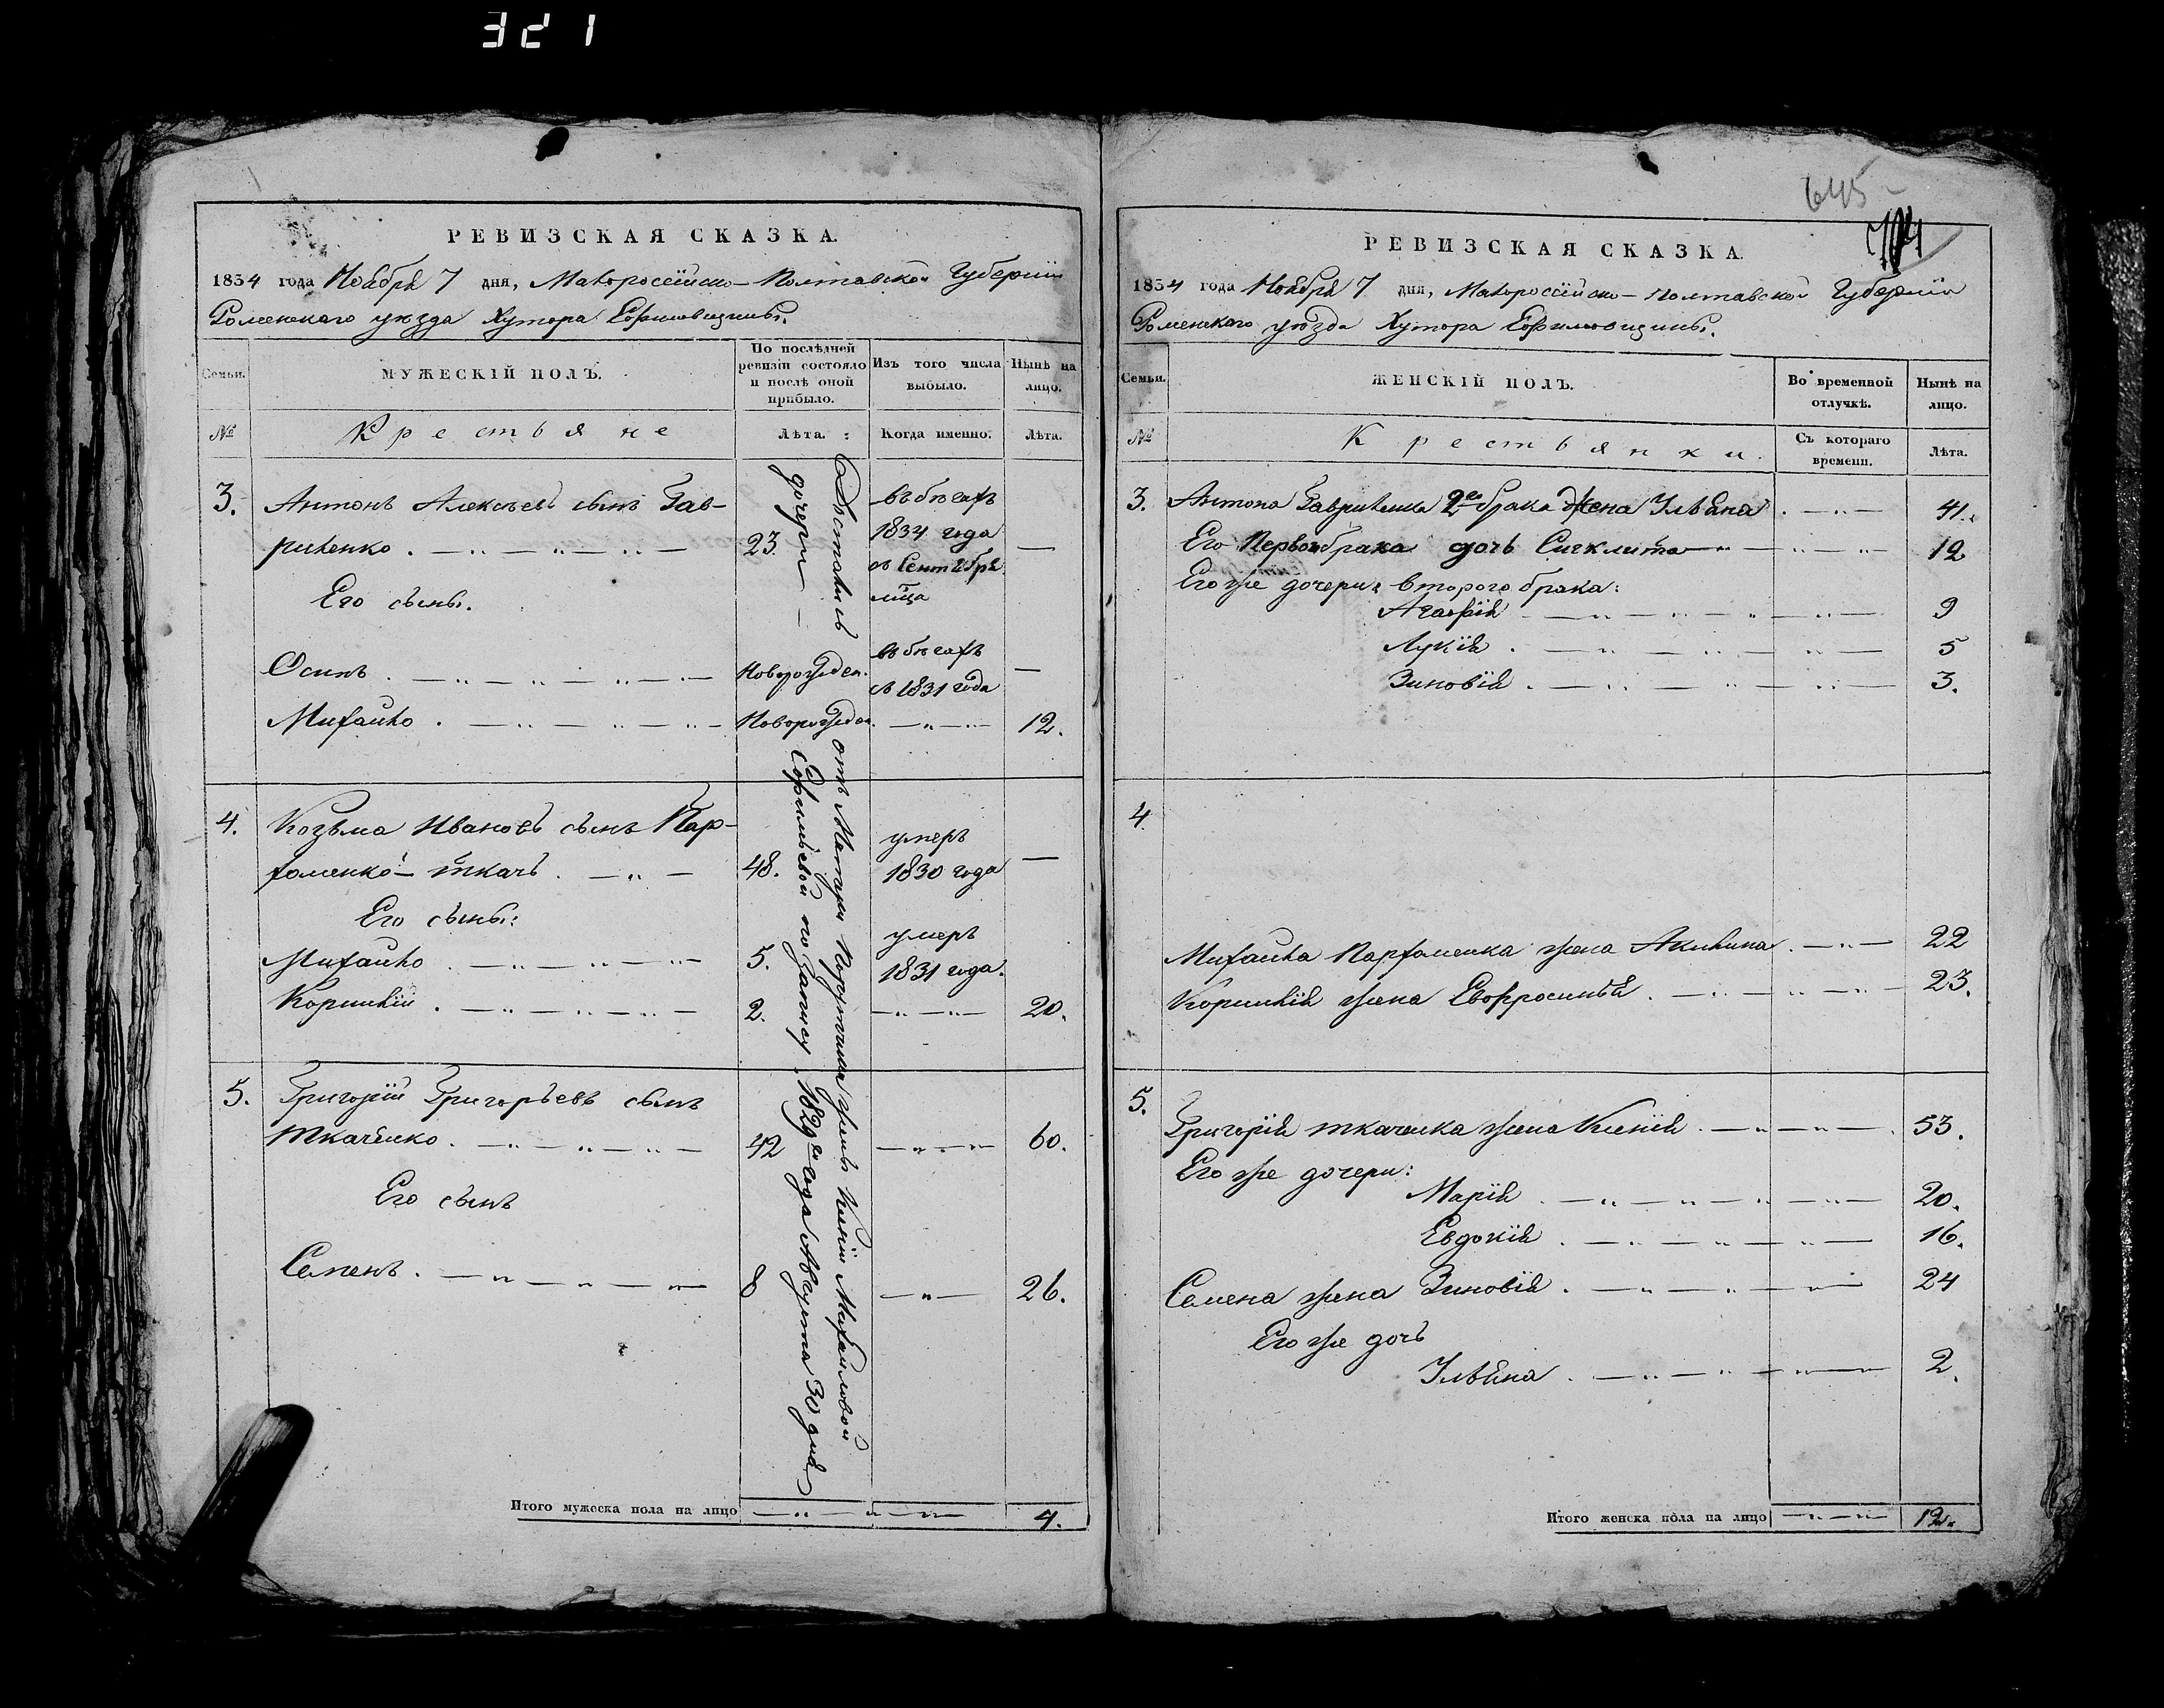 321
РЕВИЗСКАЯ СКАЗКА.
1834 года Ноября 7 дня, Малороссійско-Полтавской Губерніи
Роменскаго уѣзда Хутора Ефимовщины.
Семьи.
МУЖЕСКІЙ ПОЛЪ.
По послѣдней ревизіи состояло и послѣ оной прибыло.
Изъ того числа выбыло.
Нынѣ на лицо.
№
Крестьяне
Лѣта.
Когда именно.
Лѣта.
3. Антонъ Алексѣевъ сынъ Гав-
риленко 23. въ бѣгахъ 1834 года съ Сентября мѣца —
Его сыны.
Осипъ Новорожден. въ бѣгахъ съ 1831 года —
Михайло Новорожден. 12.
4. Козьма Ивановъ сынъ Пар-
хоменко ткачъ 48. умеръ 1830 года —
Его сыны:
Михайло 5. умеръ 1831 года.
Корнилій 2. 20.
5. Григорій Григорьевъ сынъ
Ткаченко 42 60.
Его сынъ
Семенъ 8 26.
Достались отъ Матери Порутчица жены Михайловой
дочери Ефимьевой по Записи, 1829го года Августа 30 дня
Итого мужеска пола на лицо 4.
645
РЕВИЗСКАЯ СКАЗКА.
1834 года Ноября 7 дня, Малороссійско-Полтавской Губерніи
Роменскаго уѣзда Хутора Ефимовщины.
Семьи.
ЖЕНСКІЙ ПОЛЪ.
Во временной отлучкѣ.
Нынѣ на лицо.
№
Крестьянки.
Съ котораго времени.
Лѣта.
3. Антона Гавриленка 2го брака жена Ульяна 41.
Его Первого брака дочь Сиклита 12
Его же дочери второго брака:
Агафія 9
Лукія 5
Зиновія 3.
4
Михайла Пархоменка жена Акилина 22
Корнилія жена Евфросинья 23.
5. Григорія Ткаченка жена Ксенія 53.
Его же дочери:
Марія 20.
Евдокія 16.
Семена жена Зиновія 24
Его же дочь
Ульяна 2.
Итого женска пола на лицо 12.